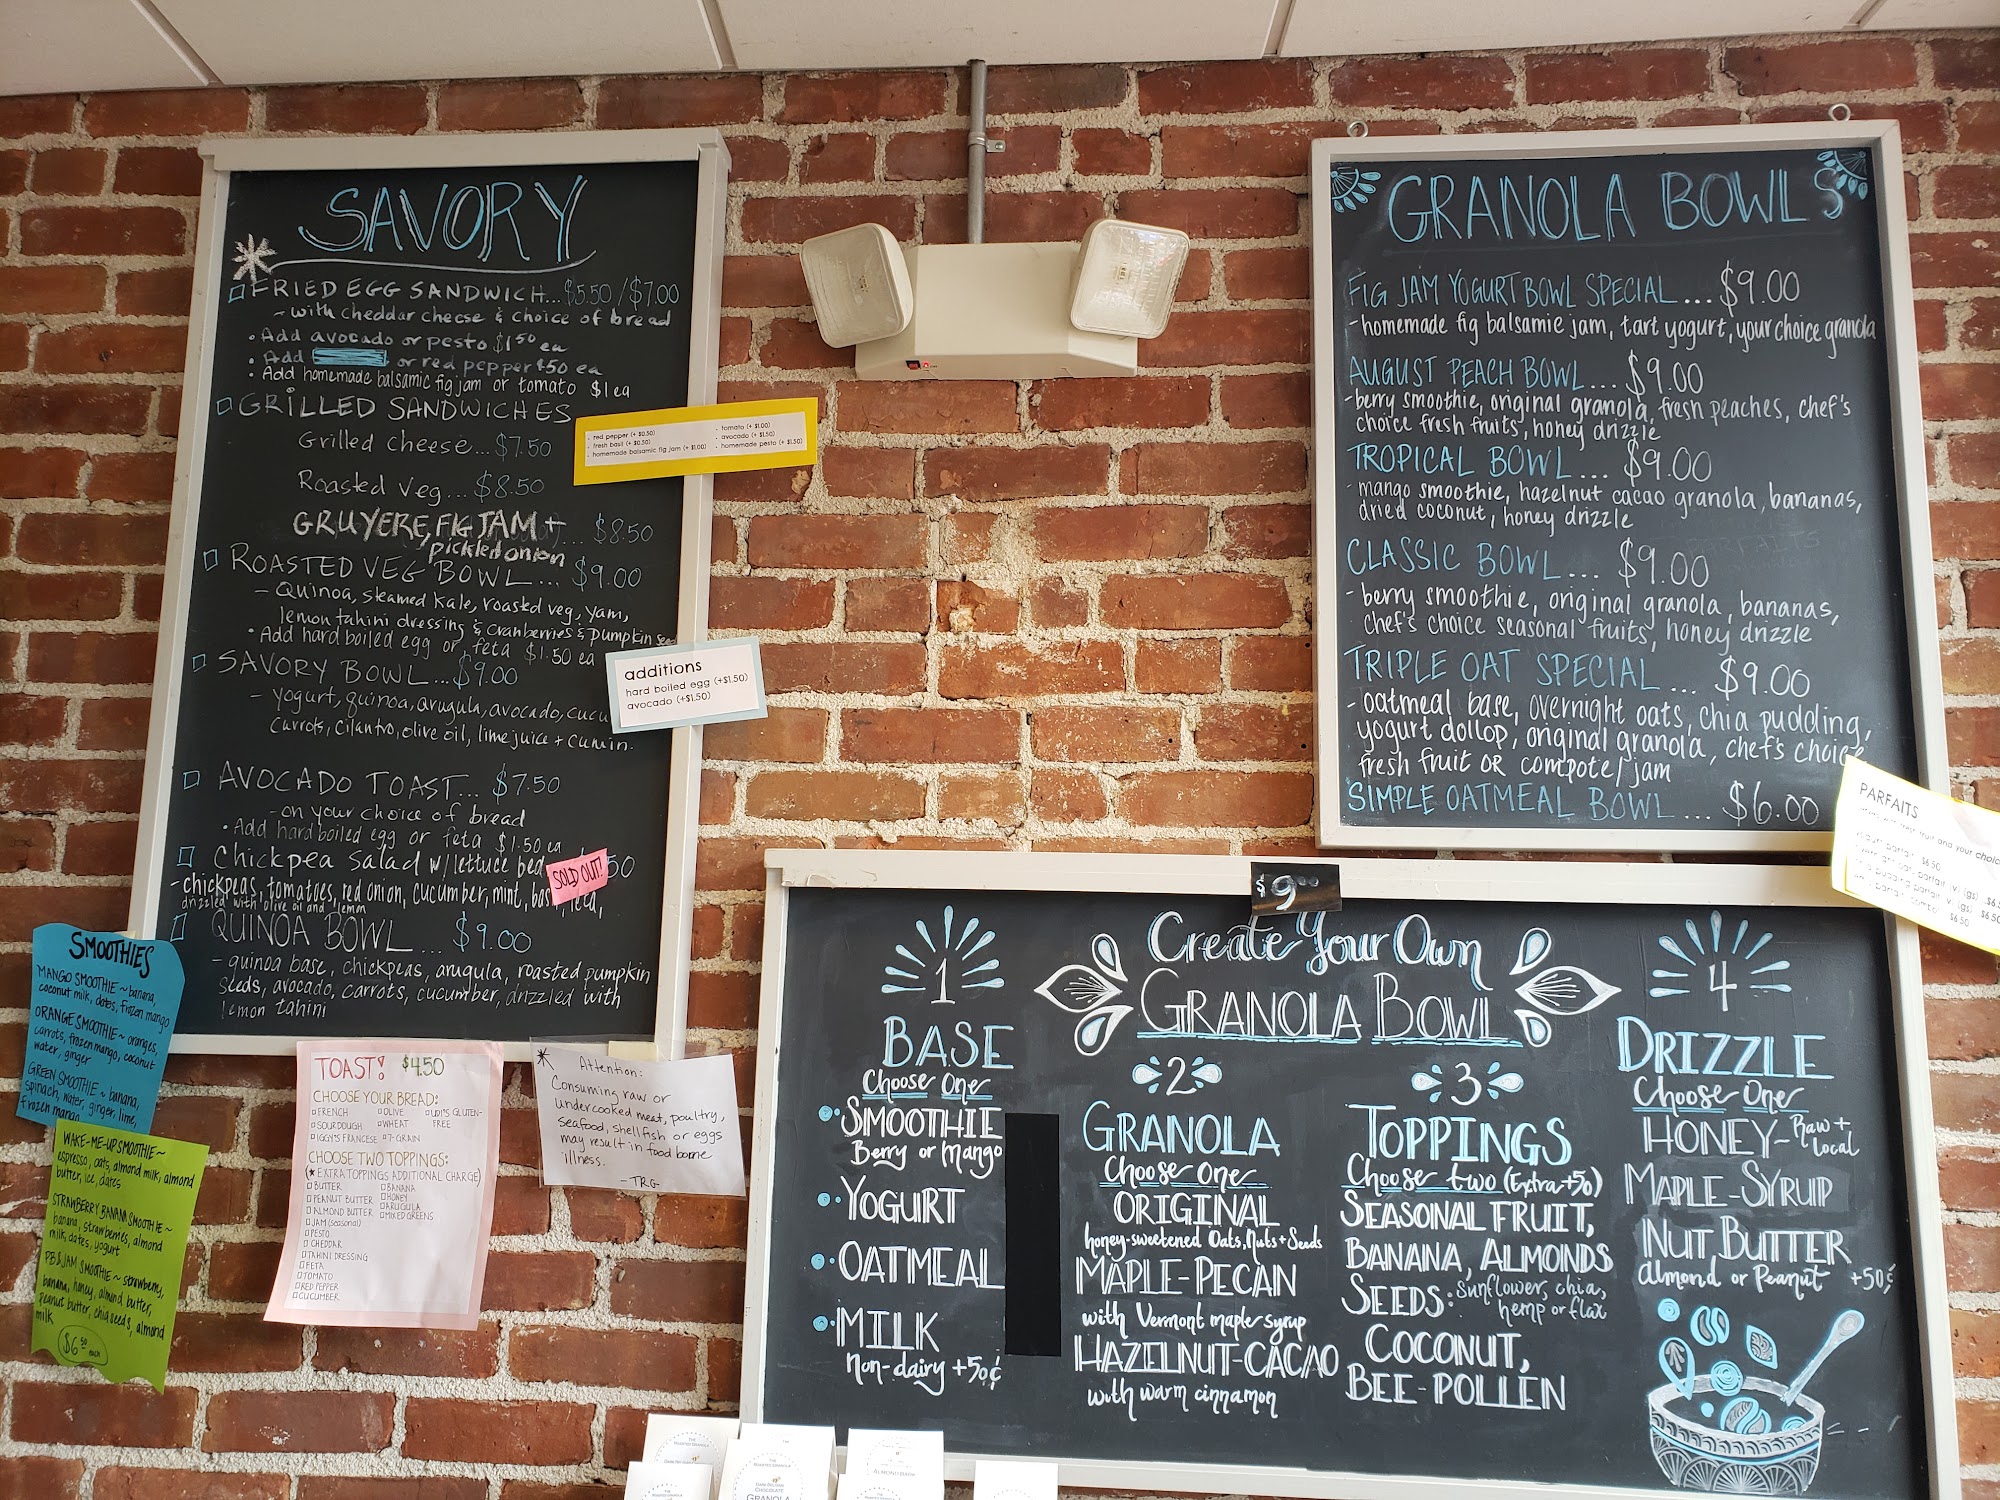 SAVORY
FRIED EGG SANDWICH...$5.50/$7.00
- with cheddar cheese & choice of bread
• Add avocado or pesto $1.50 ea
• Add or red pepper $.50 ea
• Add homemade balsamic fig jam or tomato $1 ea
GRILLED SANDWICHES
Grilled cheese...$7.50
Roasted Veg...$8.50
GRUYERE, FIG JAM + ... $8.50
pickled onion
ROASTED VEG BOWL... $9.00
- Quinoa, steamed kale, roasted veg, yam,
lemon tahini dressing & cranberries & pumpkin seed
• Add hard boiled egg or feta $1.50 ea
SAVORY BOWL...$9.00
- yogurt, quinoa, arugula, avocado, cucu
carrots, cilantro, olive oil, lime juice + cumin.
AVOCADO TOAST... $7.50
- on your choice of bread
• Add hard boiled egg or feta $1.50 ea
Chickpea Salad w/lettuce bed 50
- chickpeas, tomatoes, red onion, cucumber, mint, bas feta,
drizzled with olive oil and lemon
SOLD OUT!
QUINOA BOWL... $9.00
- quinoa base, chickpeas, arugula, roasted pumpkin
seeds, avocado, carrots, cucumber, drizzled with
lemon tahini
- red pepper (+ $0.50)
- fresh basil (+ $0.50)
- homemade balsamic fig jam (+ $1.00)
- tomato (+ $1.00)
- avocado (+ $1.50)
- homemade pesto (+ $1.50)
additions
hard boiled egg (+$1.50)
avocado (+$1.50)
GRANOLA BOWLS
FIG JAM YOGURT BOWL SPECIAL...$9.00
- homemade fig balsamic jam, tart yogurt, your choice granola
AUGUST PEACH BOWL... $9.00
- berry smoothie, original granola, fresh peaches, chef's
choice fresh fruits, honey drizzle
TROPICAL BOWL... $9.00
- mango smoothie, hazelnut cacao granola, bananas,
dried coconut, honey drizzle
CLASSIC BOWL... $9.00
- berry smoothie, original granola, bananas,
chef's choice seasonal fruits, honey drizzle
TRIPLE OAT SPECIAL... $9.00
- oatmeal base, overnight oats, chia pudding,
yogurt dollop, original granola, chef's choice
fresh fruit OR compote/jam
SIMPLE OATMEAL BOWL... $6.00
PARFAITS
fruit and your choice
yogurt parfait $6.50
overnight oat parfait (v) (gs) $6.5
chia pudding parfait v, (gs) $6.50
parfait combo $6.50
$9.00
Create Your Own
GRANOLA BOWL
1
BASE
Choose One
• SMOOTHIE
Berry or Mango
• YOGURT
• OATMEAL
• MILK
Non-dairy +50¢
2
GRANOLA
Choose One
ORIGINAL
honey-sweetened Oats, Nuts + Seeds
MAPLE-PECAN
with Vermont maple syrup
HAZELNUT-CACAO
with warm cinnamon
3
TOPPINGS
Choose two (Extra +50)
SEASONAL FRUIT,
BANANA, ALMONDS
SEEDS: Sunflower, chia,
hemp or flax
COCONUT,
BEE-POLLEN
4
DRIZZLE
Choose One
HONEY- Raw + local
MAPLE-SYRUP
NUT BUTTER
Almond or Peanut +50¢
SMOOTHIES
MANGO SMOOTHIE ~ banana,
coconut milk, dates, frozen mango
ORANGE SMOOTHIE ~ oranges,
carrots, frozen mango, coconut
water, ginger
GREEN SMOOTHIE ~ banana,
spinach, water, ginger, lime,
frozen mango
WAKE-ME-UP SMOOTHIE ~
espresso, oats, almond milk, almond
butter, ice, dates
STRAWBERRY BANANA SMOOTHIE ~
banana, strawberries, almond
milk, dates, yogurt
PB&JAM SMOOTHIE ~ strawberry,
banana, honey, almond butter,
peanut butter, chia seeds, almond
milk
$6.50 each
TOAST! $4.50
CHOOSE YOUR BREAD:
FRENCH OLIVE UDI'S GLUTEN-
SOURDOUGH WHEAT FREE
IGGY'S FRANCESE 7-GRAIN
CHOOSE TWO TOPPINGS:
(* EXTRA TOPPINGS ADDITIONAL CHARGE)
BUTTER BANANA
PEANUT BUTTER HONEY
ALMOND BUTTER ARUGULA
JAM (seasonal) MIXED GREENS
PESTO
CHEDDAR
TAHINI DRESSING
FETA
TOMATO
RED PEPPER
CUCUMBER
* Attention:
Consuming raw or
undercooked meat, poultry,
seafood, shellfish or eggs
may result in food borne
illness.
- TRG -
THE
ROASTED GRANOLA
DARK
CHOCOLATE
GRANOLA
ALMOND BARK